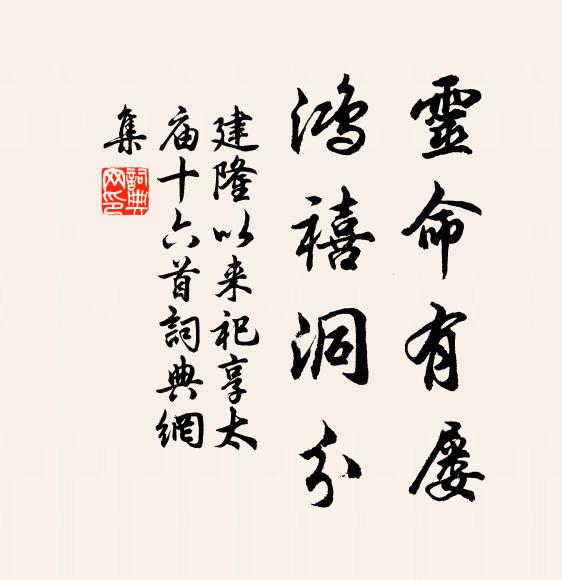 靈命有屡
鴻禧洞分
建隆以来祀享太
庙十六首詞典網
集
詞典网印